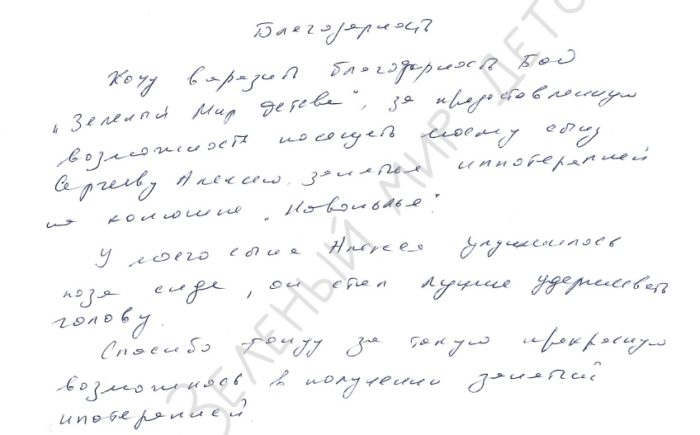 Благодарность
Хочу выразить благодарность БОО
"Зеленый Мир детства", за предоставленную
возможность посещать моему сыну
Сергееву Алексею занятия иппотерапией
на конюшне "Новополье".
У моего сына Алексея улучшилось
поза сидя, он стал лучше удерживать
голову.
Спасибо фонду за такую прекрасную
возможность в получении занятий
ипотерапией
ЗЕЛЕНЫЙ МИР ДЕТС